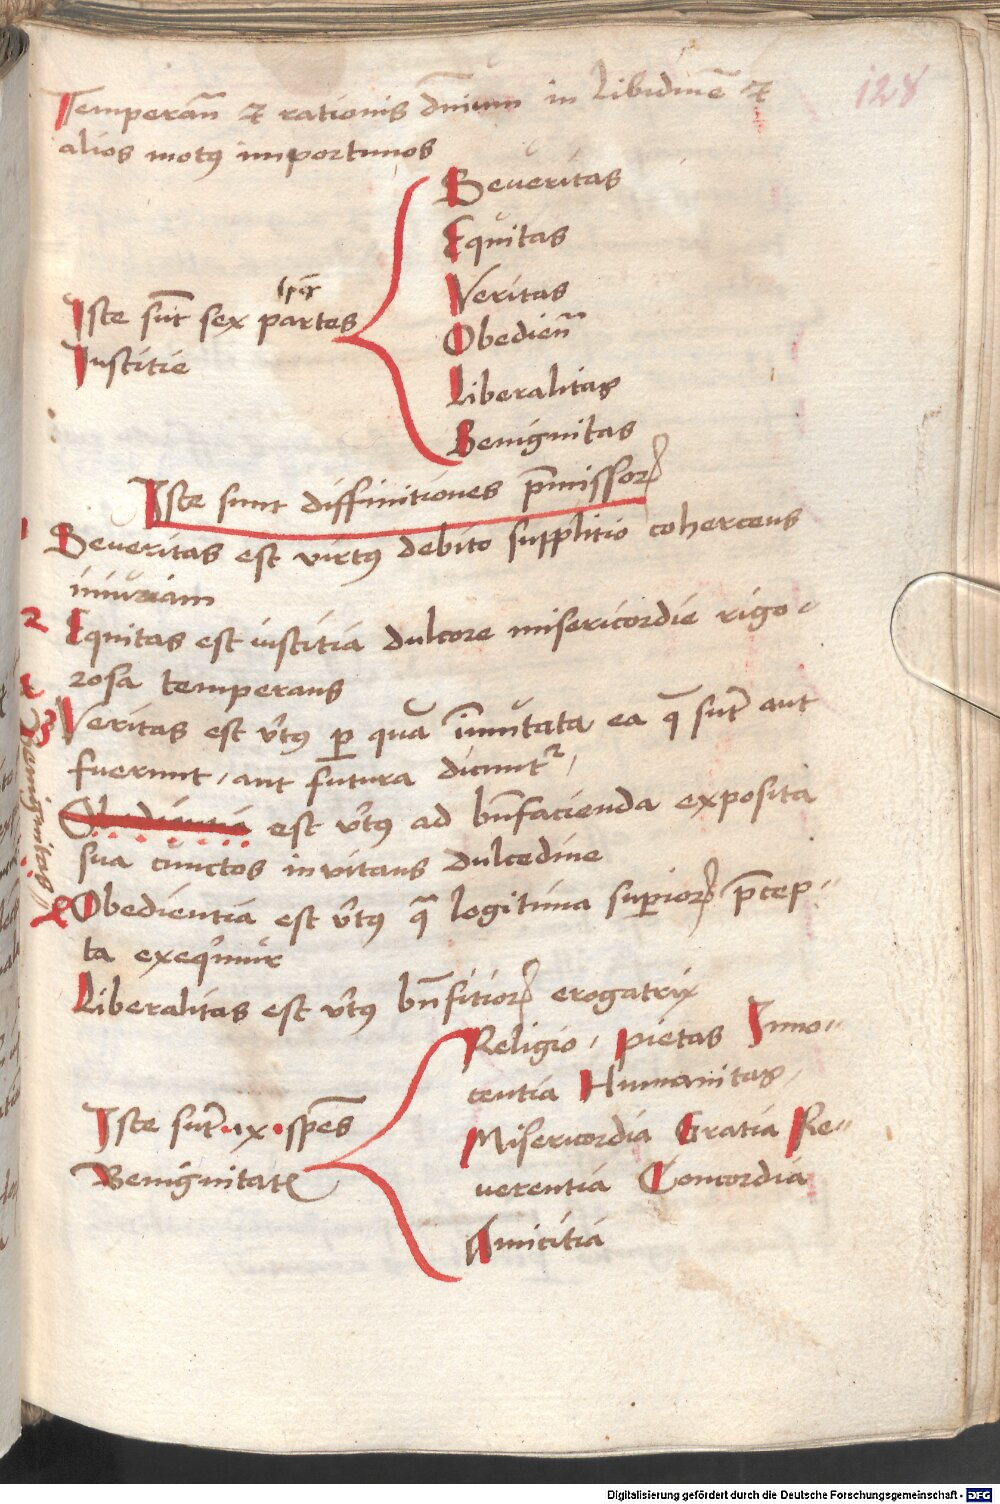 128
Temperan̄ est rationis dn̄ium in libidinē et
alios motꝰ importunos
Seueritas
Equitas
Veritas
Iste sūt sex partes
Obedien̄
Iusticie
Liberalitas
Benignitas
Iste sunt diffinitiones p̄missoꝝ
Seueritas est virtꝰ debito supplitio cohercens
iniuriam
2 Equitas est iusticia dulcore misericordie rigo-
rosa temperans
3 Veritas est v̉tꝰ ꝑ quā īmutata ea q̄ sūt aut
fuerunt, aut futura dicunt᷑,
Benignitas
Obedientia est v̉tꝰ ad bn̄facienda exposita
sua cunctos invitans dulcedine
Obedientia est v̉tꝰ qᵃ legitima superioꝝ p̄cep-
ta exequimur
Liberalitas est v̉tꝰ bn̄fitioꝝ erogatrix
Religio, pietas Inno-
centia Humanitas,
Iste sūt .ix. sp̄es
Misericordia Gratia Re-
Benignitatꝭ
uerentia Concordia
Amicitia
Digitalisierung gefördert durch die Deutsche Forschungsgemeinschaft - DFG